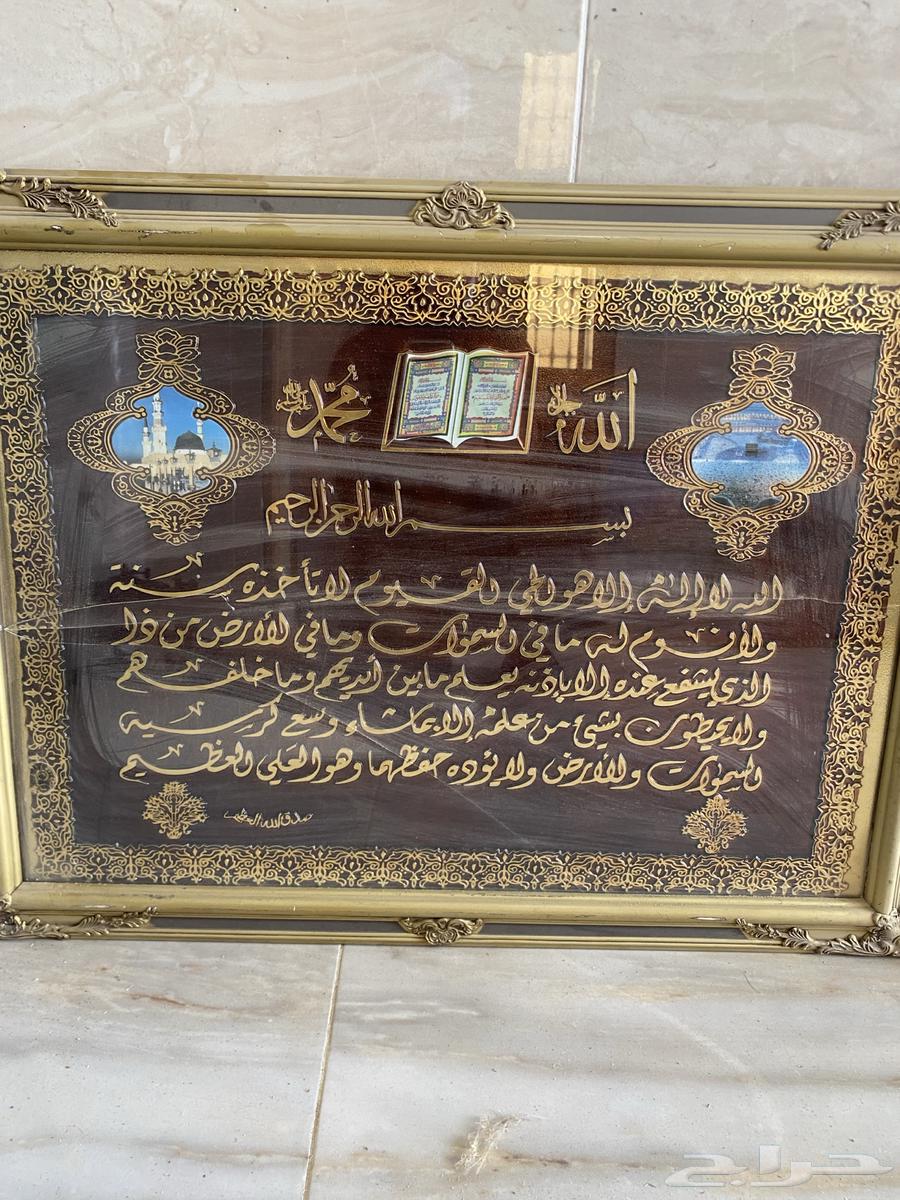 الله جل جلاله
محمد
بسم الله الرحمن الرحيم
الله لا إله إلا هو الحي القيوم لا تأخذه سنة
ولا نوم له ما في السموات وما في الأرض من ذا
الذي يشفع عنده إلا بإذنه يعلم ما بين أيديهم وما خلفهم
ولا يحيطون بشيئ من علمه إلا بما شاء وسع كرسيه
السموات والأرض ولا يؤده حفظهما وهو العلي العظيم
صدق الله العظيم
حراج